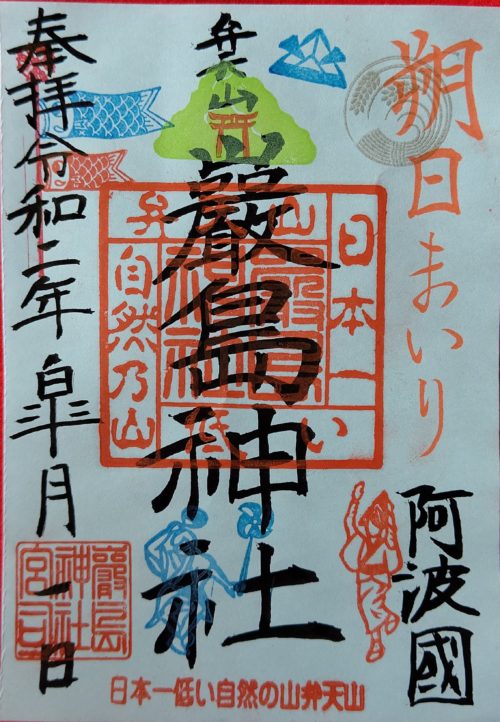 朔日まいり
阿波國
弁天山
厳島神社
日本一
い
低
山
弁
自然乃山
奉拝令和二年皐月一日
嚴島
神社
宮司
日本一低い自然の山弁天山